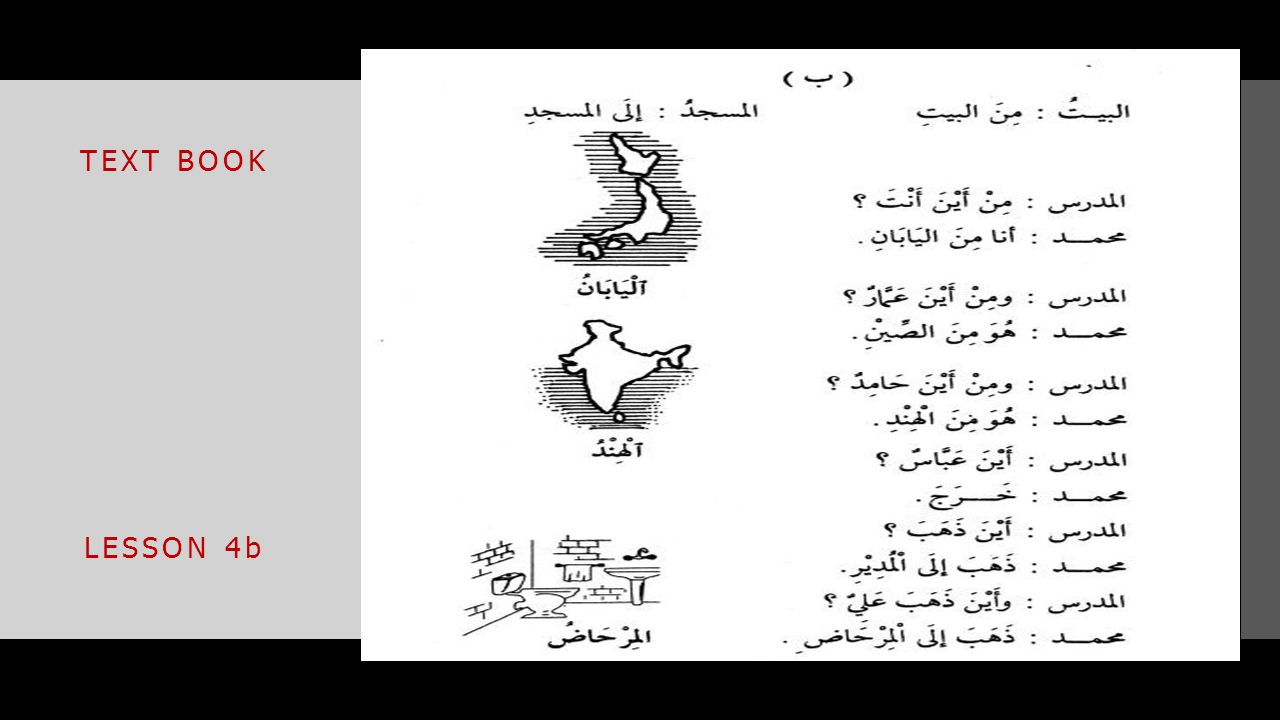 TEXT BOOK
LESSON 4b
( ب )
البيــتُ : مِنَ البيتِ المسجدُ : إلَى المسجدِ
المدرس : مِنْ أَيْنَ أَنْتَ ؟
محمــد : أنا مِنَ اليَابَانِ .
ٱلْيَابَانُ
المدرس : ومِنْ أَيْنَ عَمَّارٌ ؟
محمــد : هُوَ مِنَ الصِّيْنِ .
المدرس : ومِنْ أَيْنَ حَامِدٌ ؟
محمــد : هُوَ مِنَ الْهِنْدِ .
ٱلْهِنْدُ
المدرس : أَيْنَ عَبَّاسٌ ؟
محمــد : خَــرَجَ .
المدرس : أَيْنَ ذَهَبَ ؟
محمــد : ذَهَبَ إلَى ٱلْمُدِيْرِ .
المدرس : وأَيْنَ ذَهَبَ عَلِيٌ ؟
محمــد : ذَهَبَ إلَى ٱلْمِرْحَاضِ .
المِرْحَاضُ